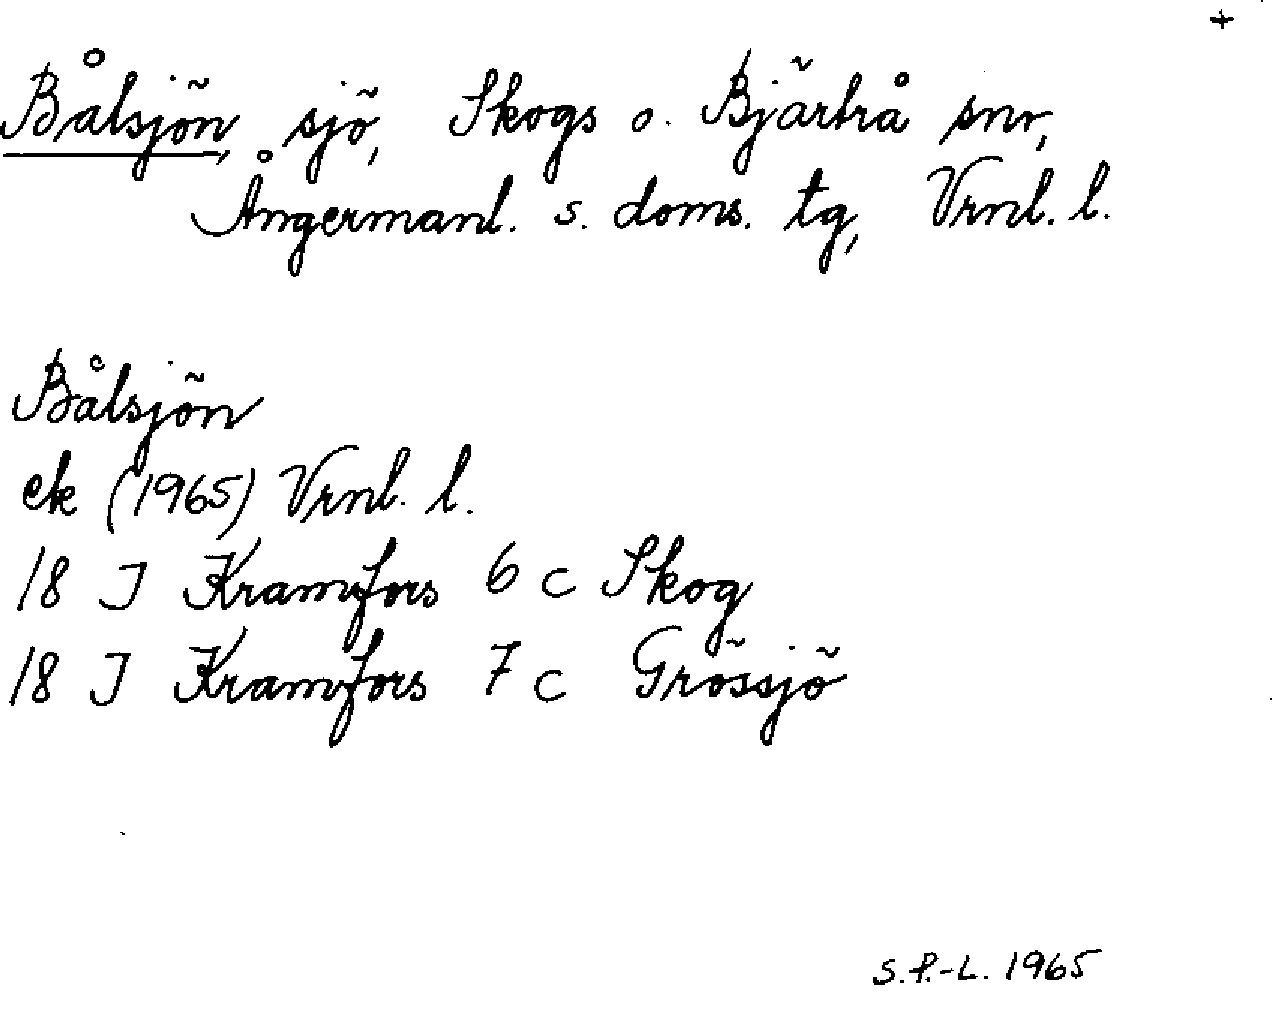 +
Bålsjön, sjö, Skogs o. Bjärtrå snr,
Ångermanl. s. doms. tg, Vrnl. l.
Bålsjön
ek (1965) Vrnl. l.
18 J Kramfors 6 c Skog
18 J Kramfors 7 c Grössjö
S.P.-L. 1965